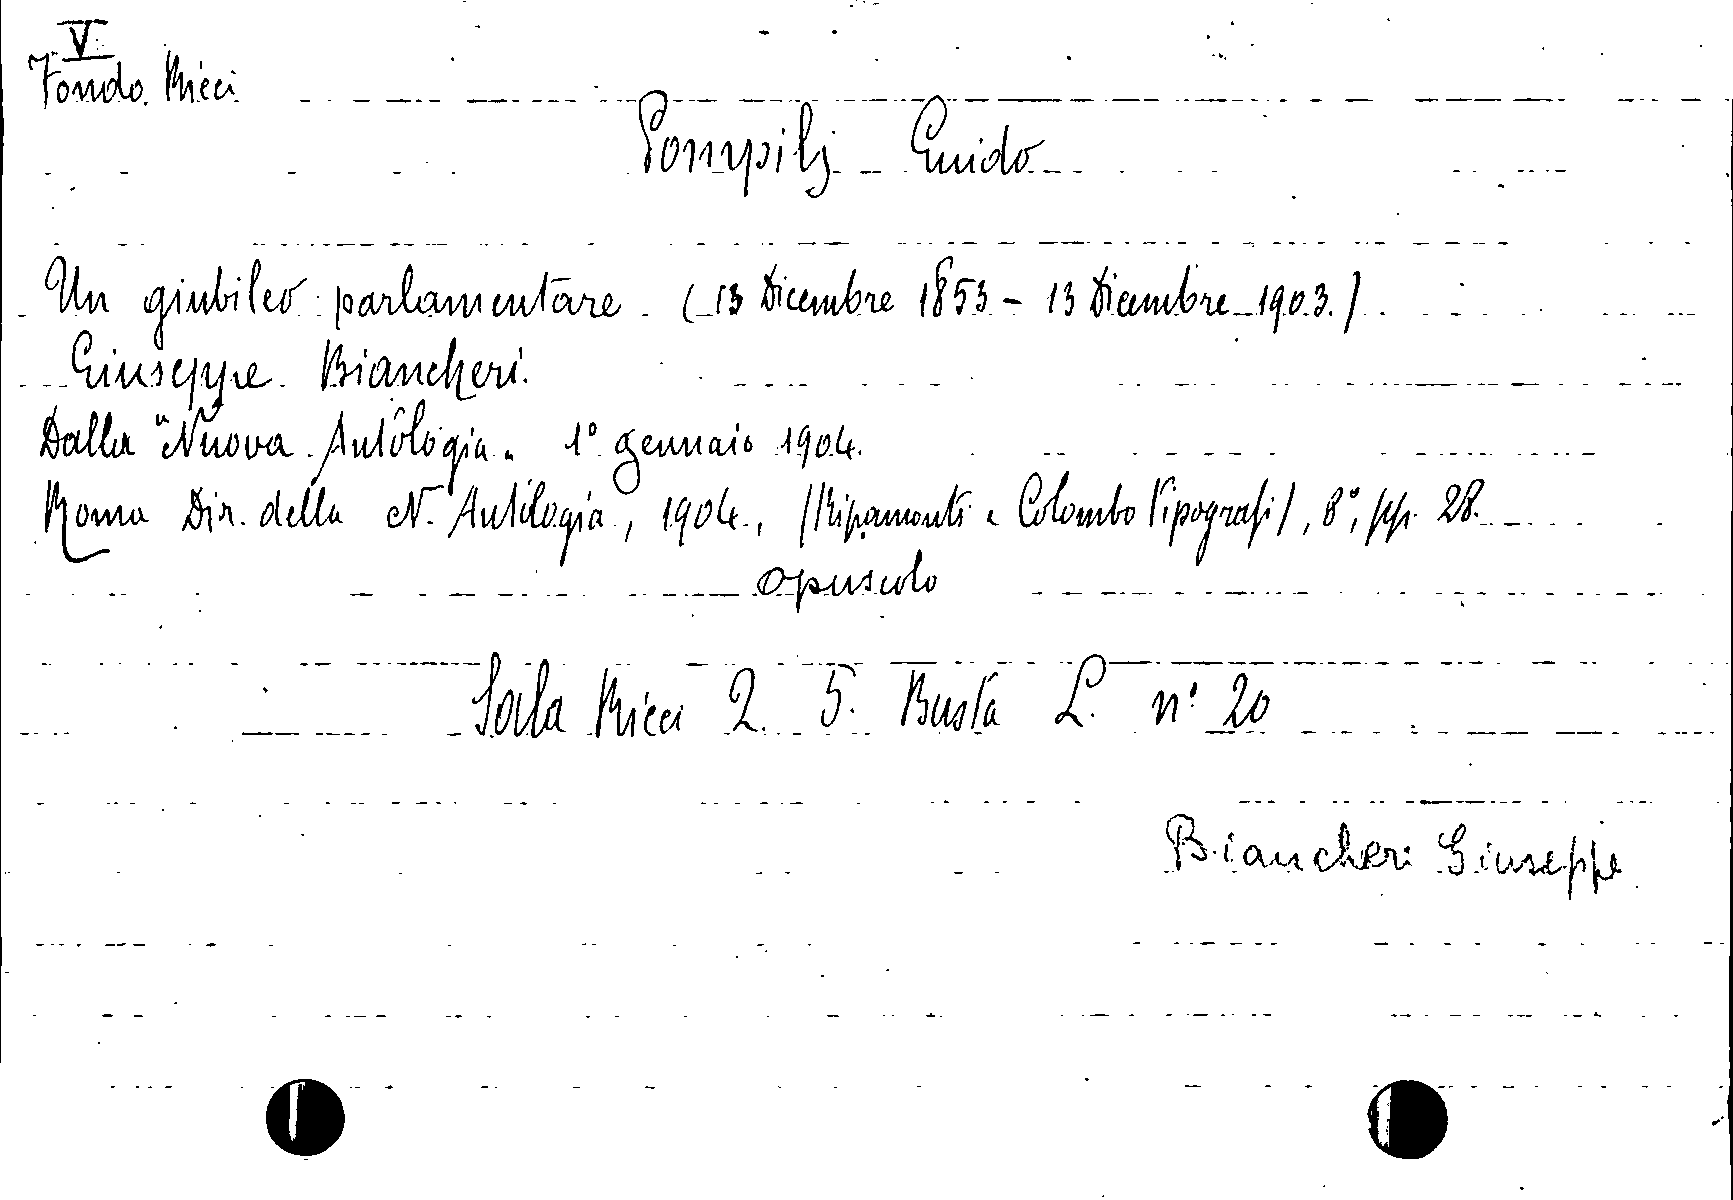 V
Fondo Ricci
Pompilj Guido
Un giubileo parlamentare (13 Dicembre 1853 - 13 Dicembre 1903.)
Giuseppe Biancheri.
Dalla "Nuova Antologia" 1° gennaio 1904.
Roma Dir. della N. Antologia, 1904, (Ripamonti e Colombo Tipografi), 8°, pp. 28.
opuscolo
Sala Ricci 2. 5. Busta L. n° 20
Biancheri Giuseppe